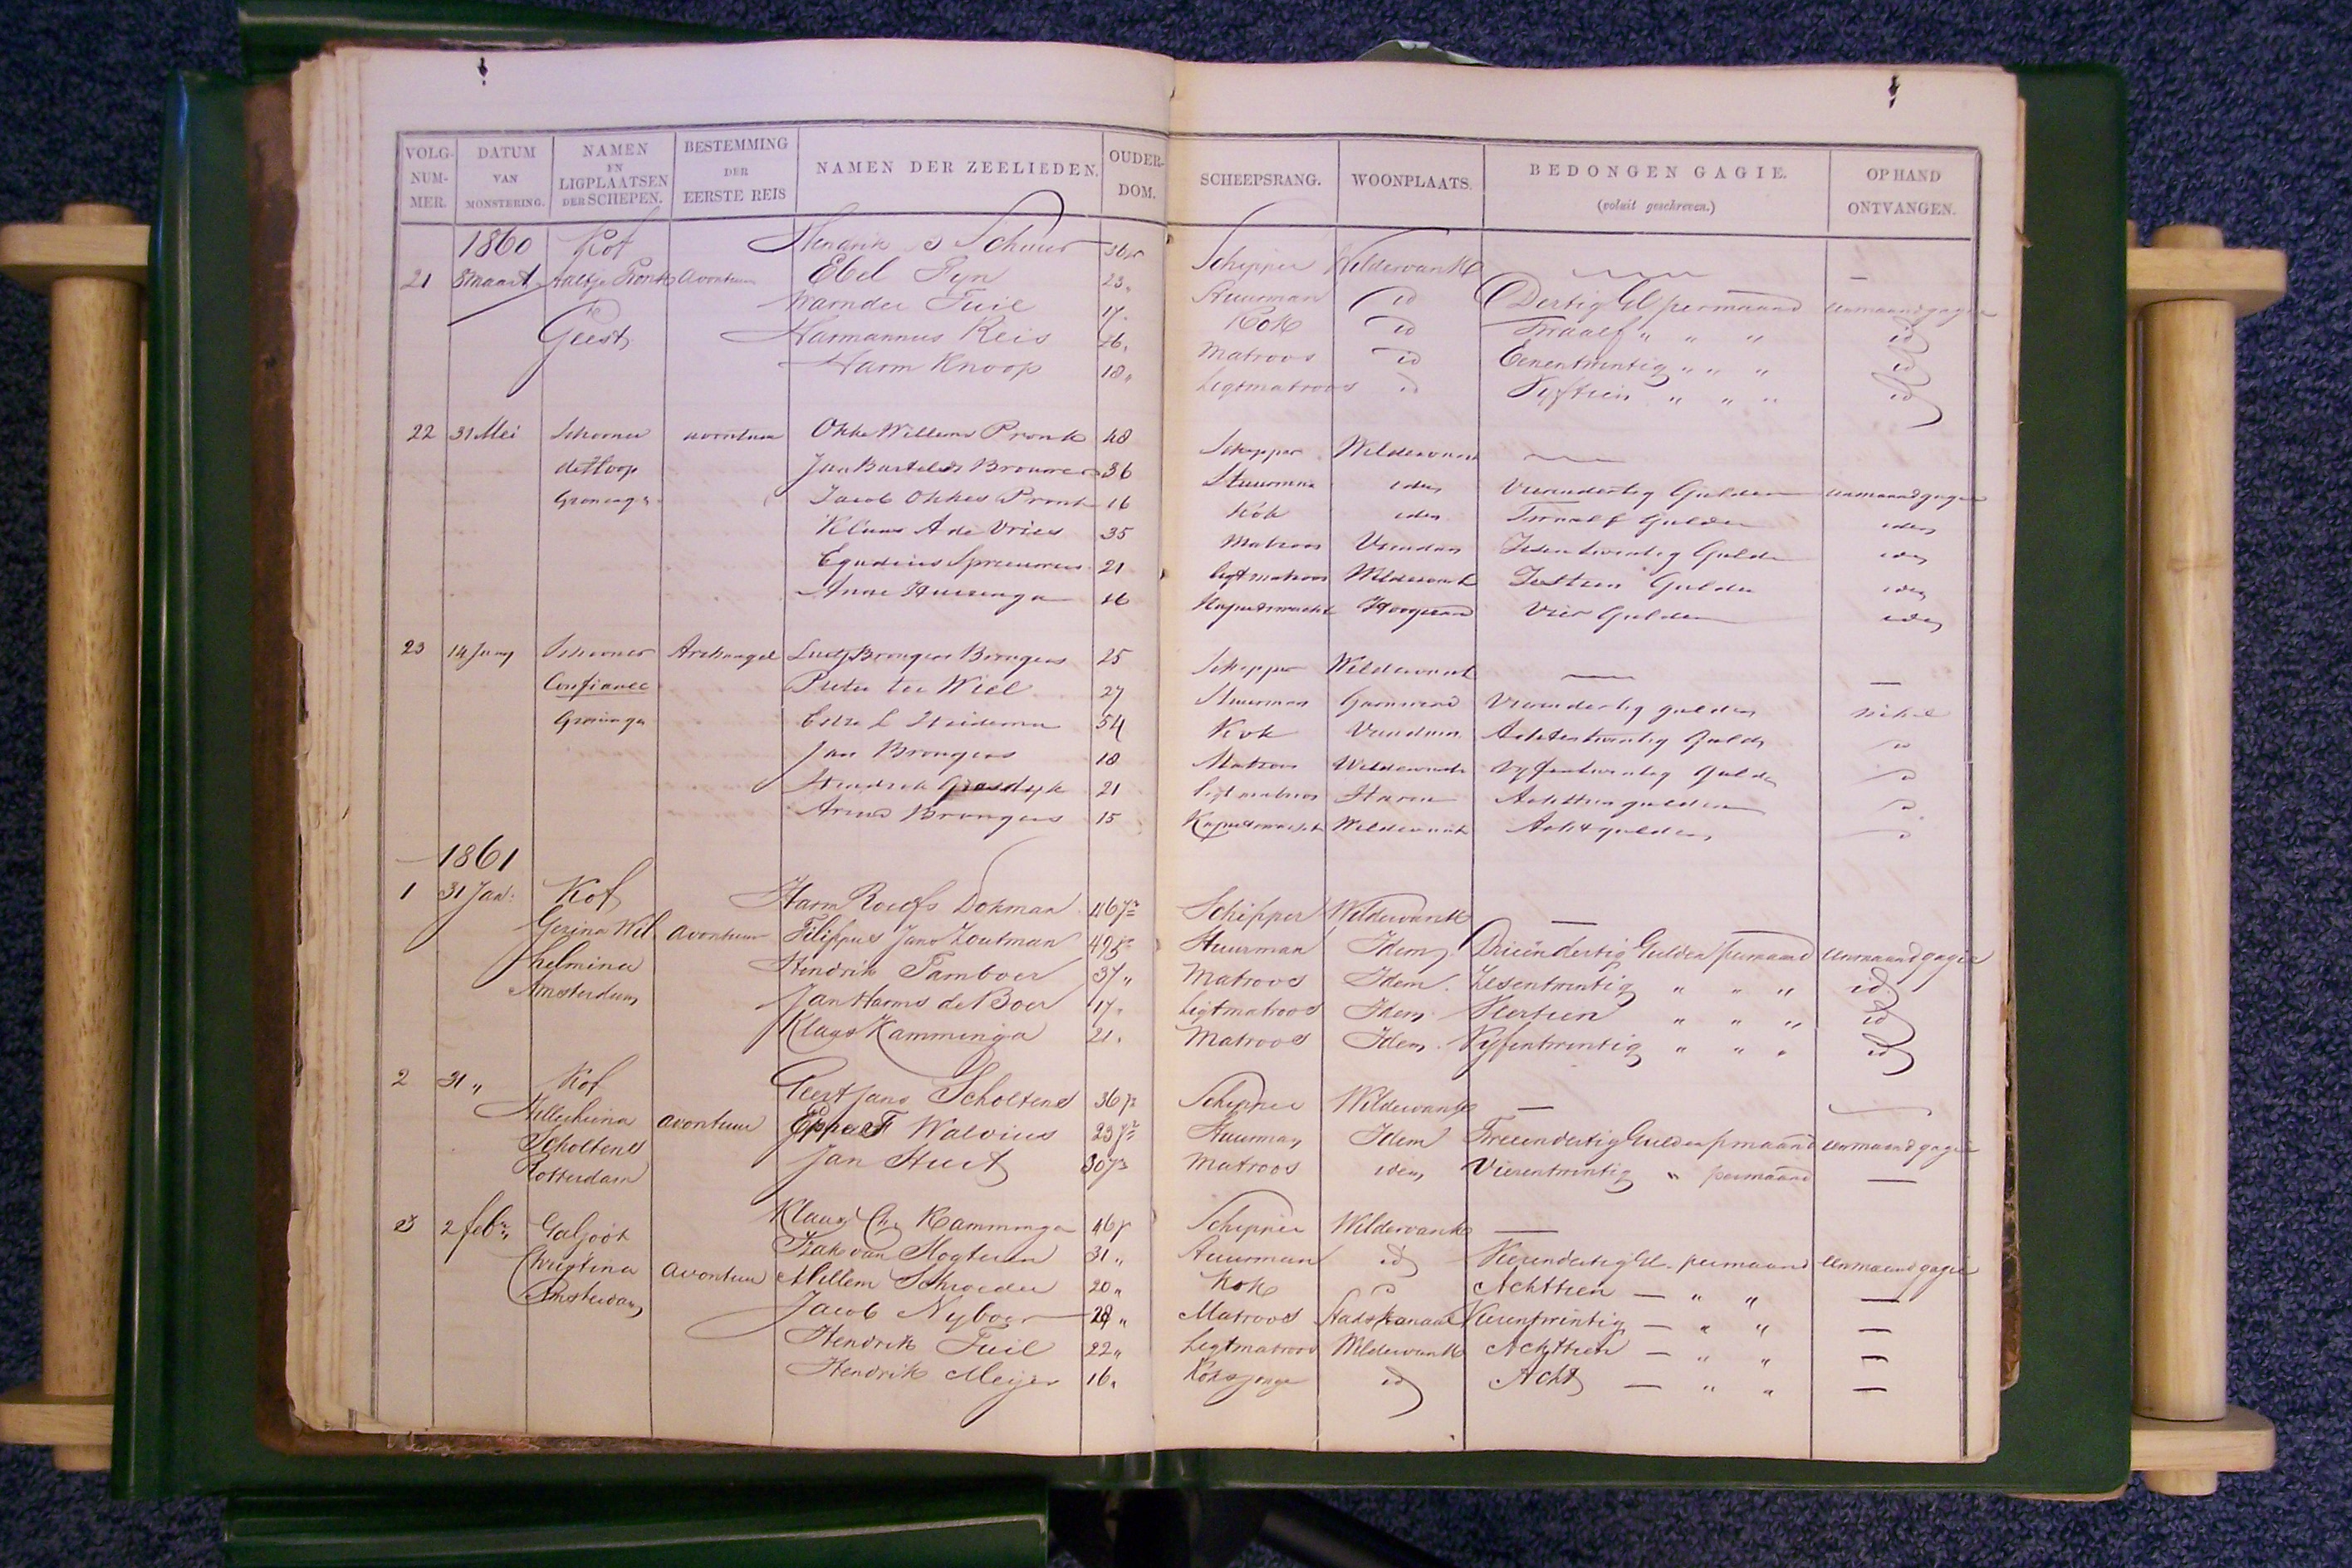 VOLG- NUM- MER. DATUM VAN MONSTERING. NAMEN EN LIGPLAATSEN DER SCHEPEN. BESTEMMING DER EERSTE REIS NAMEN DER ZEELIEDEN. OUDER- DOM. SCHEEPSRANG. WOONPLAATS. BEDONGEN GAGIE. (voluit geschreven.) OP HAND ONTVANGEN.
1860 Kof Hendrik B Schuur 36 jr Schipper Wildervank
21 8 maart Aaltje Pronk avontuur Ebel Fyn 23 " Stuurman id Dertig Gl per maand een maand gagie
te Warnder Tuil 17 Kok id Twaalf " " " id
Geest Harmannus Reis 26 " Matroos id Eenentwintig " " " id
Harm Knoop 18 " Ligtmatroos id Vyftien " " " id
22 31 Mei Schooner avontuur Okke Willems Pronk 48 Schipper Wildervank
de Hoop Jan Bartelds Brouwer 36 Stuurman idem Vierendertig Gulden een maand gagie
Groninge Jacob Okkes Pronk 16 Kok idem Twaalf Gulden idem
Klaas A de Vries 35 Matroos Veendam Zesentwintig Gulden idem
21 ligtmatroos Wildervank Zestien Gulden idem
Anne Huizenga 16 Kajuitswacht Hoogezand Vier Gulden idem
23 14 Juny Schooner Archangel Brongers Brongers 25 Schipper Wildervank
Confiance Pieter ter Wiel 27 Stuurman Garnwerd Vierendertig gulden nihil
Groninge L 54 Kok Veendam Achtentwintig Gulden id
Jan Brongers 18 Matroos Wildervank Vyfentwintig Gulden id
Hendrik Grasdyk 21 ligtmatroos Haren Achttien gulden id
Arend Brongers 15 Kajuitswacht Wildervank Acht gulden id
1861
1 31 Jan: Kof Harm Roelfs Dokman 46 jr Schipper Wildervank
Gezina Wil avontuur Filippus Jans Zoutman 49 jr Stuurman Idem Drieëndertig Gulden per maand een maand gagie
helmina Hendrik Tamboer 37 " Matroos Idem. Zesentwintig " " " id
Amsterdam Jan Harms de Boer 17 " Ligtmatroos Idem Veertien " " " id
Klaas Kamminga 21 " Matroos Idem. Vyfentwintig " " " id
2 31 " Kof Geert Jans Scholtens 36 jr Schipper Wildervank
Hillechiena avontuur Eppe F Walvius 23 jr Stuurman Idem Tweeendertig Gulden p maand een maand gagie
Scholtens Jan Stuit 30 jr Matroos idem Vierentwintig " per maand —
Rotterdam
3 2 febr. Galjoot Klaas Chr Kamminga 46 jr Schipper Wildervank —
Christina Izak van Slogteren 31 " Stuurman id Vierendertig Gl. per maand een maand gagie
avontuur Willem Schroeder 20 " Kok id Achttien — " " —
Amsterdam Jacob Nyboer 28 " Matroos Stadskanaal Vierentwintig — " " —
Hendrik Tuil 22 " Ligtmatroos Wildervank Achttien — " " —
Hendrik Meijer 16 " Koksjonge id Acht — " " —